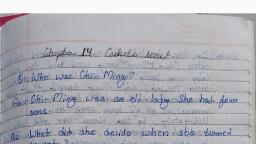 Chapter 14 Cakul's secret
Q1 Who was Chi-Ming?
Ans Chi-Ming was an old lady She had four
sons.
Q2 What did she decide when she turned